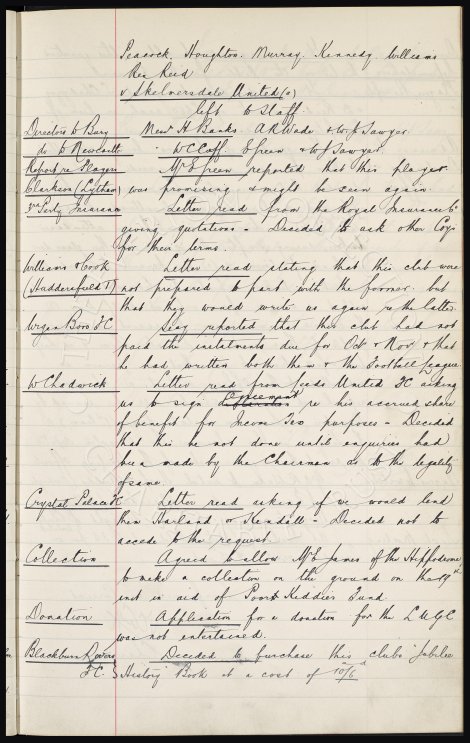 Peacock. Houghton. Murray. Kennedy. Williams
Rev Reed
v Skelmersdale United (a)
left to Staff
Directors to Bury Messrs H Banks A R Wade & W J Sawyer
do to Newcastle " W C Cuff. E Green & W J Sawyer
Report re Players Mr E Green reported that this player
Clarkson (Lytham) was promising & might be seen again.
3rd Party Insurance Letter read from the Royal Insurance Co
giving quotations - Decided to ask other Coys
for their terms.
Williams & Cook Letter read stating that this club were
(Huddersfield T) not prepared to part with the former but
that they would write us again re the latter.
Wigan Boro FC Secy reported that this club had not
paid the instalments due for Oct & Nov & that
he had written both them & the Football League
W Chadwick Letter read from Leeds United FC asking
agreement
us to sign re his accrued share
of benefit for Income Tax purposes - Decided
that this be not done until enquiries had
been made by the Chairman as to the legality
of same.
Crystal Palace FC Letter read asking if we would lend
them Harland or Kendall - Decided not to
accede to the request.
Collection Agreed to allow Mr E James of the Hippodrome
to make a collection on the ground on the
inst in aid of Poor Kiddies Fund
Donation Application for a donation for the L U G C
was not entertained.
Blackburn Rovers Decided to purchase this clubs Jubilee
FC. } History Book at a cost of 10/6